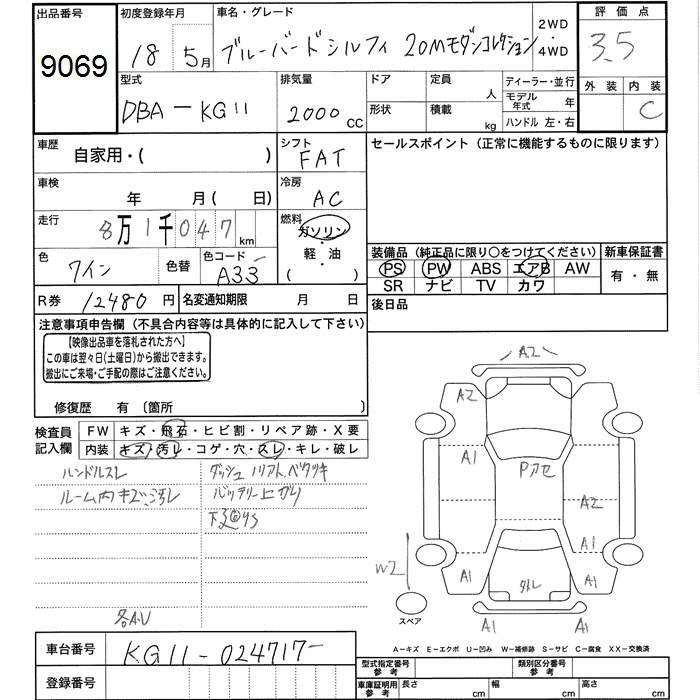 出品番号 9069
初度登録年月 18年 5月
車名・グレード ブルーバードシルフィ 20Mモダンコレクション
2WD・4WD
評価点 3.5
外装 内装 C
型式 DBA-KG11
排気量 2000 CC
ドア 形状
定員 人
積載 kg
ディーラー・並行
モデル年式 年
ハンドル 左・右
車歴 自家用・( )
シフト FAT
セールスポイント(正常に機能するものに限ります)
車検 年 月( 日)
冷房 AC
走行 8万1千047km
燃料 ガソリン・軽油( )
色 ワイン
色替
色コード A33
装備品(純正品に限り〇をつけてください)
PS PW ABS エアB AW
SR ナビ TV カワ
新車保証書 有・無
R券 12480円
名変通知期限 月 日
後日品
注意事項申告欄(不具合内容等は具体的に記入して下さい)
【映像出品車を落札された方へ】
この車は翌々日(土曜日)から搬出できます。
搬出にご来場・ご手配の際はご注意ください。
修復歴 有〔箇所 〕
検査員記入欄
FW キズ・飛石・ヒビ割・リペア跡・X要
内装 キズ・汚レ・コゲ・穴・スレ・キレ・破レ
ハンドルスレ
ルーム内キズ汚レ
ダッシュ ベタツキ
バッテリー上ガリ
各A.U
A2
A2
A1
Pガラセ
A2
A1
W2
A1
外レ
A1
スペア
A1
A1
A-キズ E-エクボ U-凹み W-補修跡 S-サビ C-腐食 XX-交換済
車台番号 KG11-024717-
登録番号
型式指定番号 参考
類別区分番号 参考
車庫証明用 参考
長さ cm
幅 cm
高さ cm